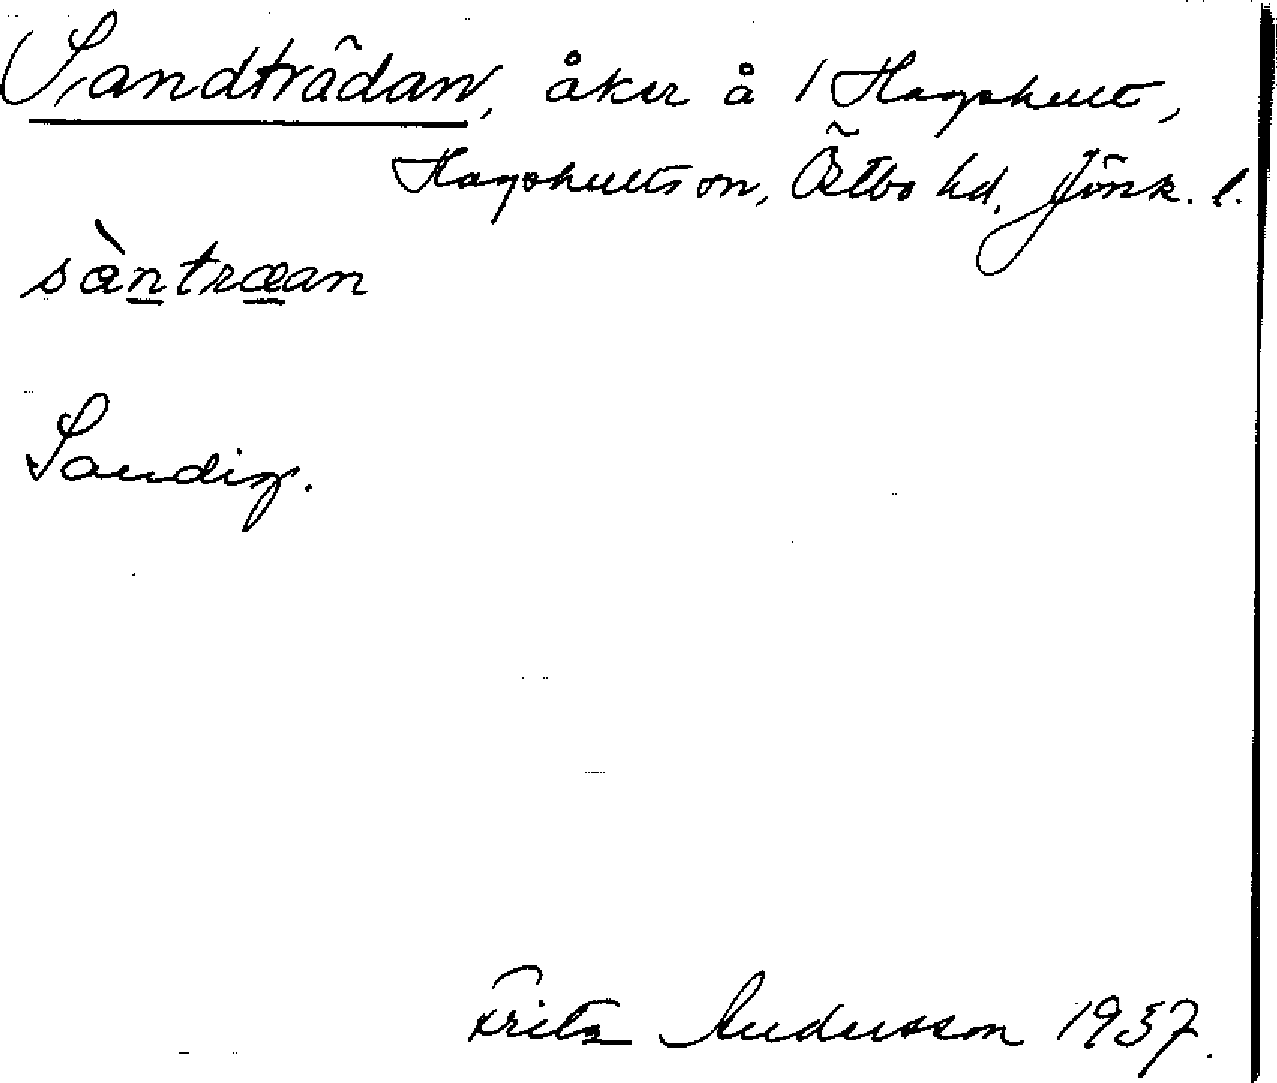 Sandträdan, åker å 1 Hagshult,
Hagshults sn, Östbo hd, Jönk. l.
sàntræan
Sandig.
Fritz Andersson 1937.